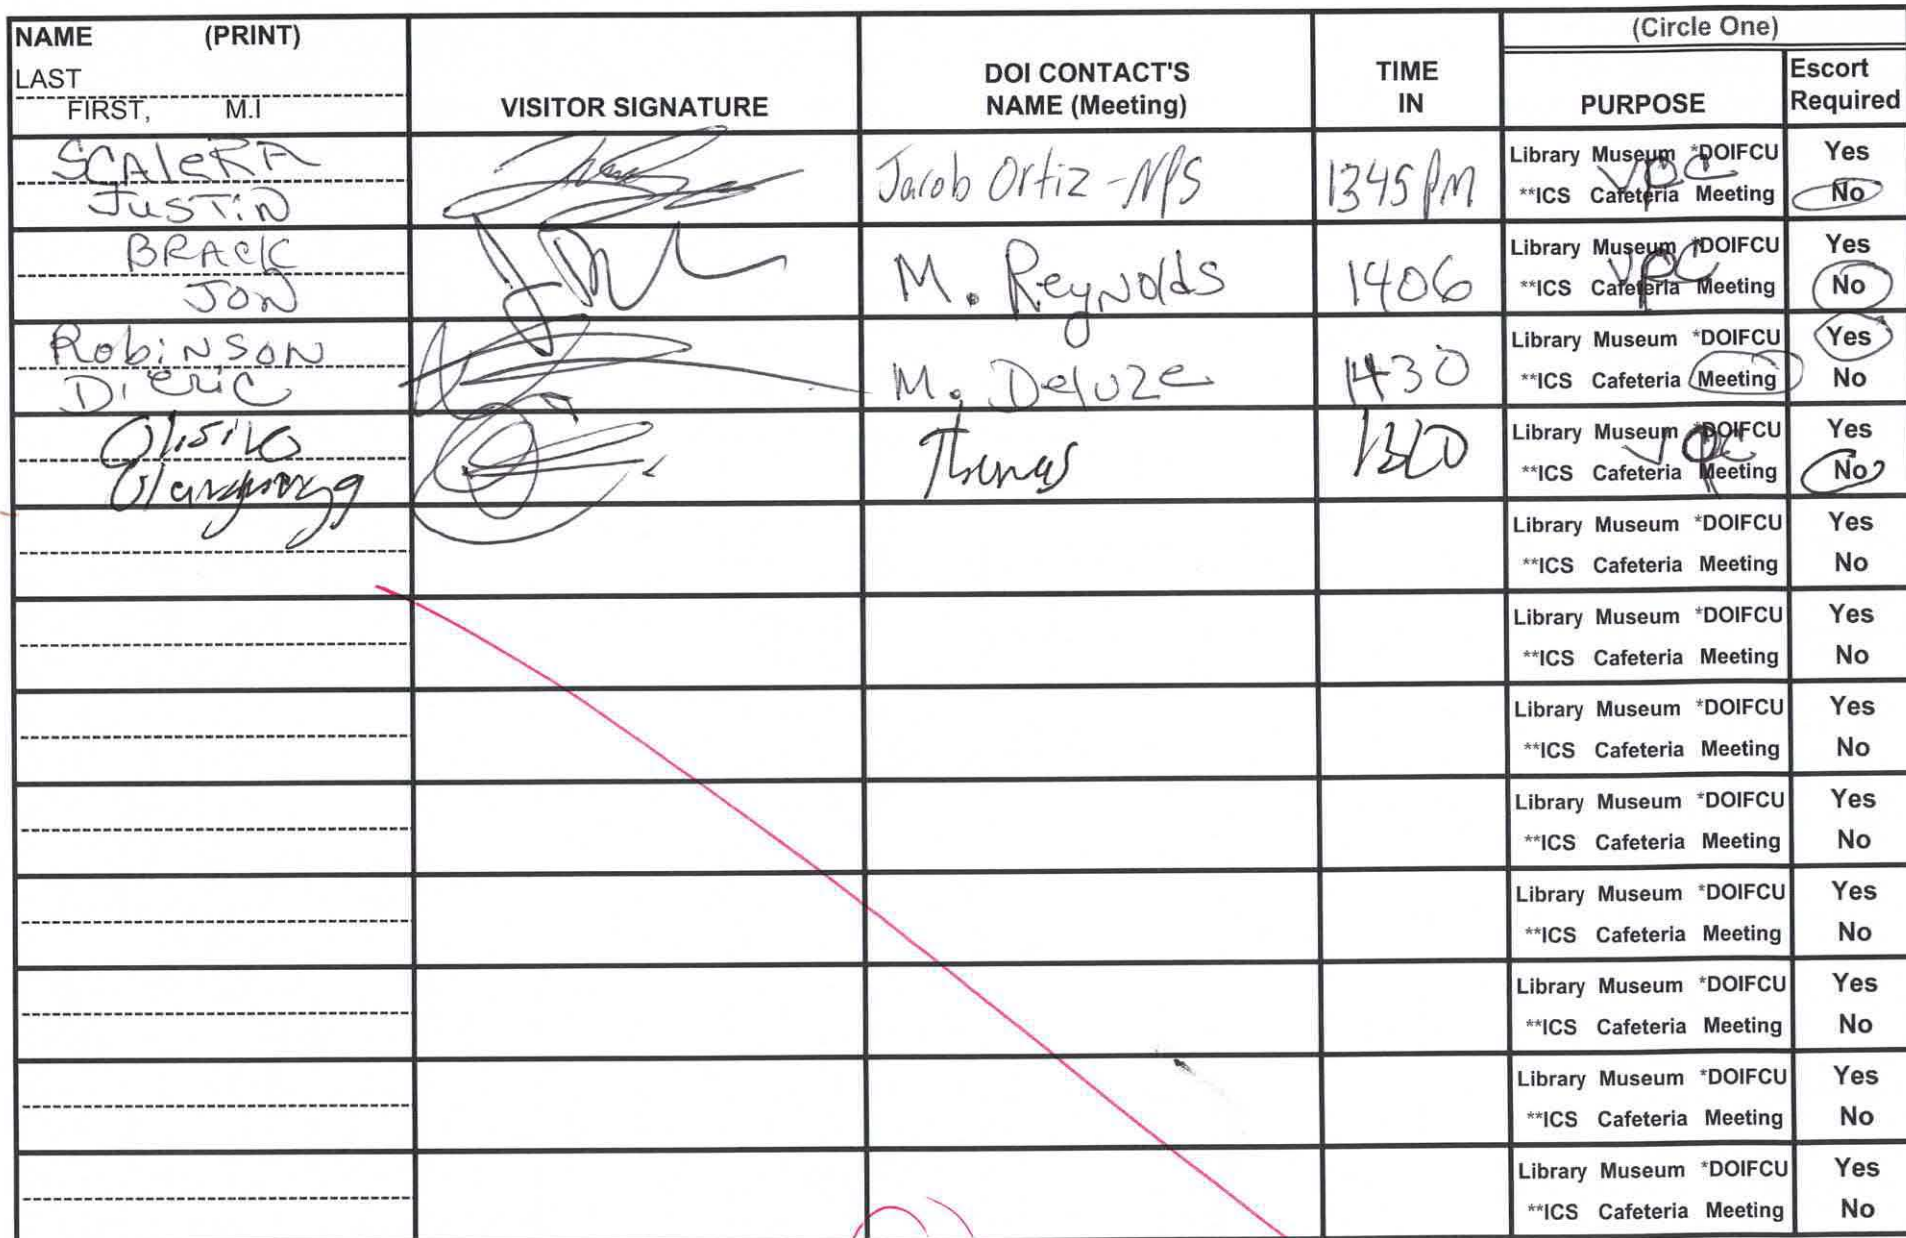 NAME (PRINT)
LAST
FIRST, M.I
VISITOR SIGNATURE
DOI CONTACT'S
NAME (Meeting)
TIME
IN
(Circle One)
PURPOSE
Escort
Required
SCALERA
JUSTIN
Jacob Ortiz - NPS
1345 PM
Library Museum *DOIFCU
**ICS Cafeteria Meeting
VPC
Yes
No
BRACK
JON
M. Reynolds
1406
Library Museum *DOIFCU
**ICS Cafeteria Meeting
VPC
Yes
No
Robinson
D'eric
M. Deluze
1430
Library Museum *DOIFCU
**ICS Cafeteria Meeting
Yes
No
Thomas
Library Museum *DOIFCU
**ICS Cafeteria Meeting
VPC
Yes
No
Library Museum *DOIFCU
**ICS Cafeteria Meeting
Yes
No
Library Museum *DOIFCU
**ICS Cafeteria Meeting
Yes
No
Library Museum *DOIFCU
**ICS Cafeteria Meeting
Yes
No
Library Museum *DOIFCU
**ICS Cafeteria Meeting
Yes
No
Library Museum *DOIFCU
**ICS Cafeteria Meeting
Yes
No
Library Museum *DOIFCU
**ICS Cafeteria Meeting
Yes
No
Library Museum *DOIFCU
**ICS Cafeteria Meeting
Yes
No
Library Museum *DOIFCU
**ICS Cafeteria Meeting
Yes
No